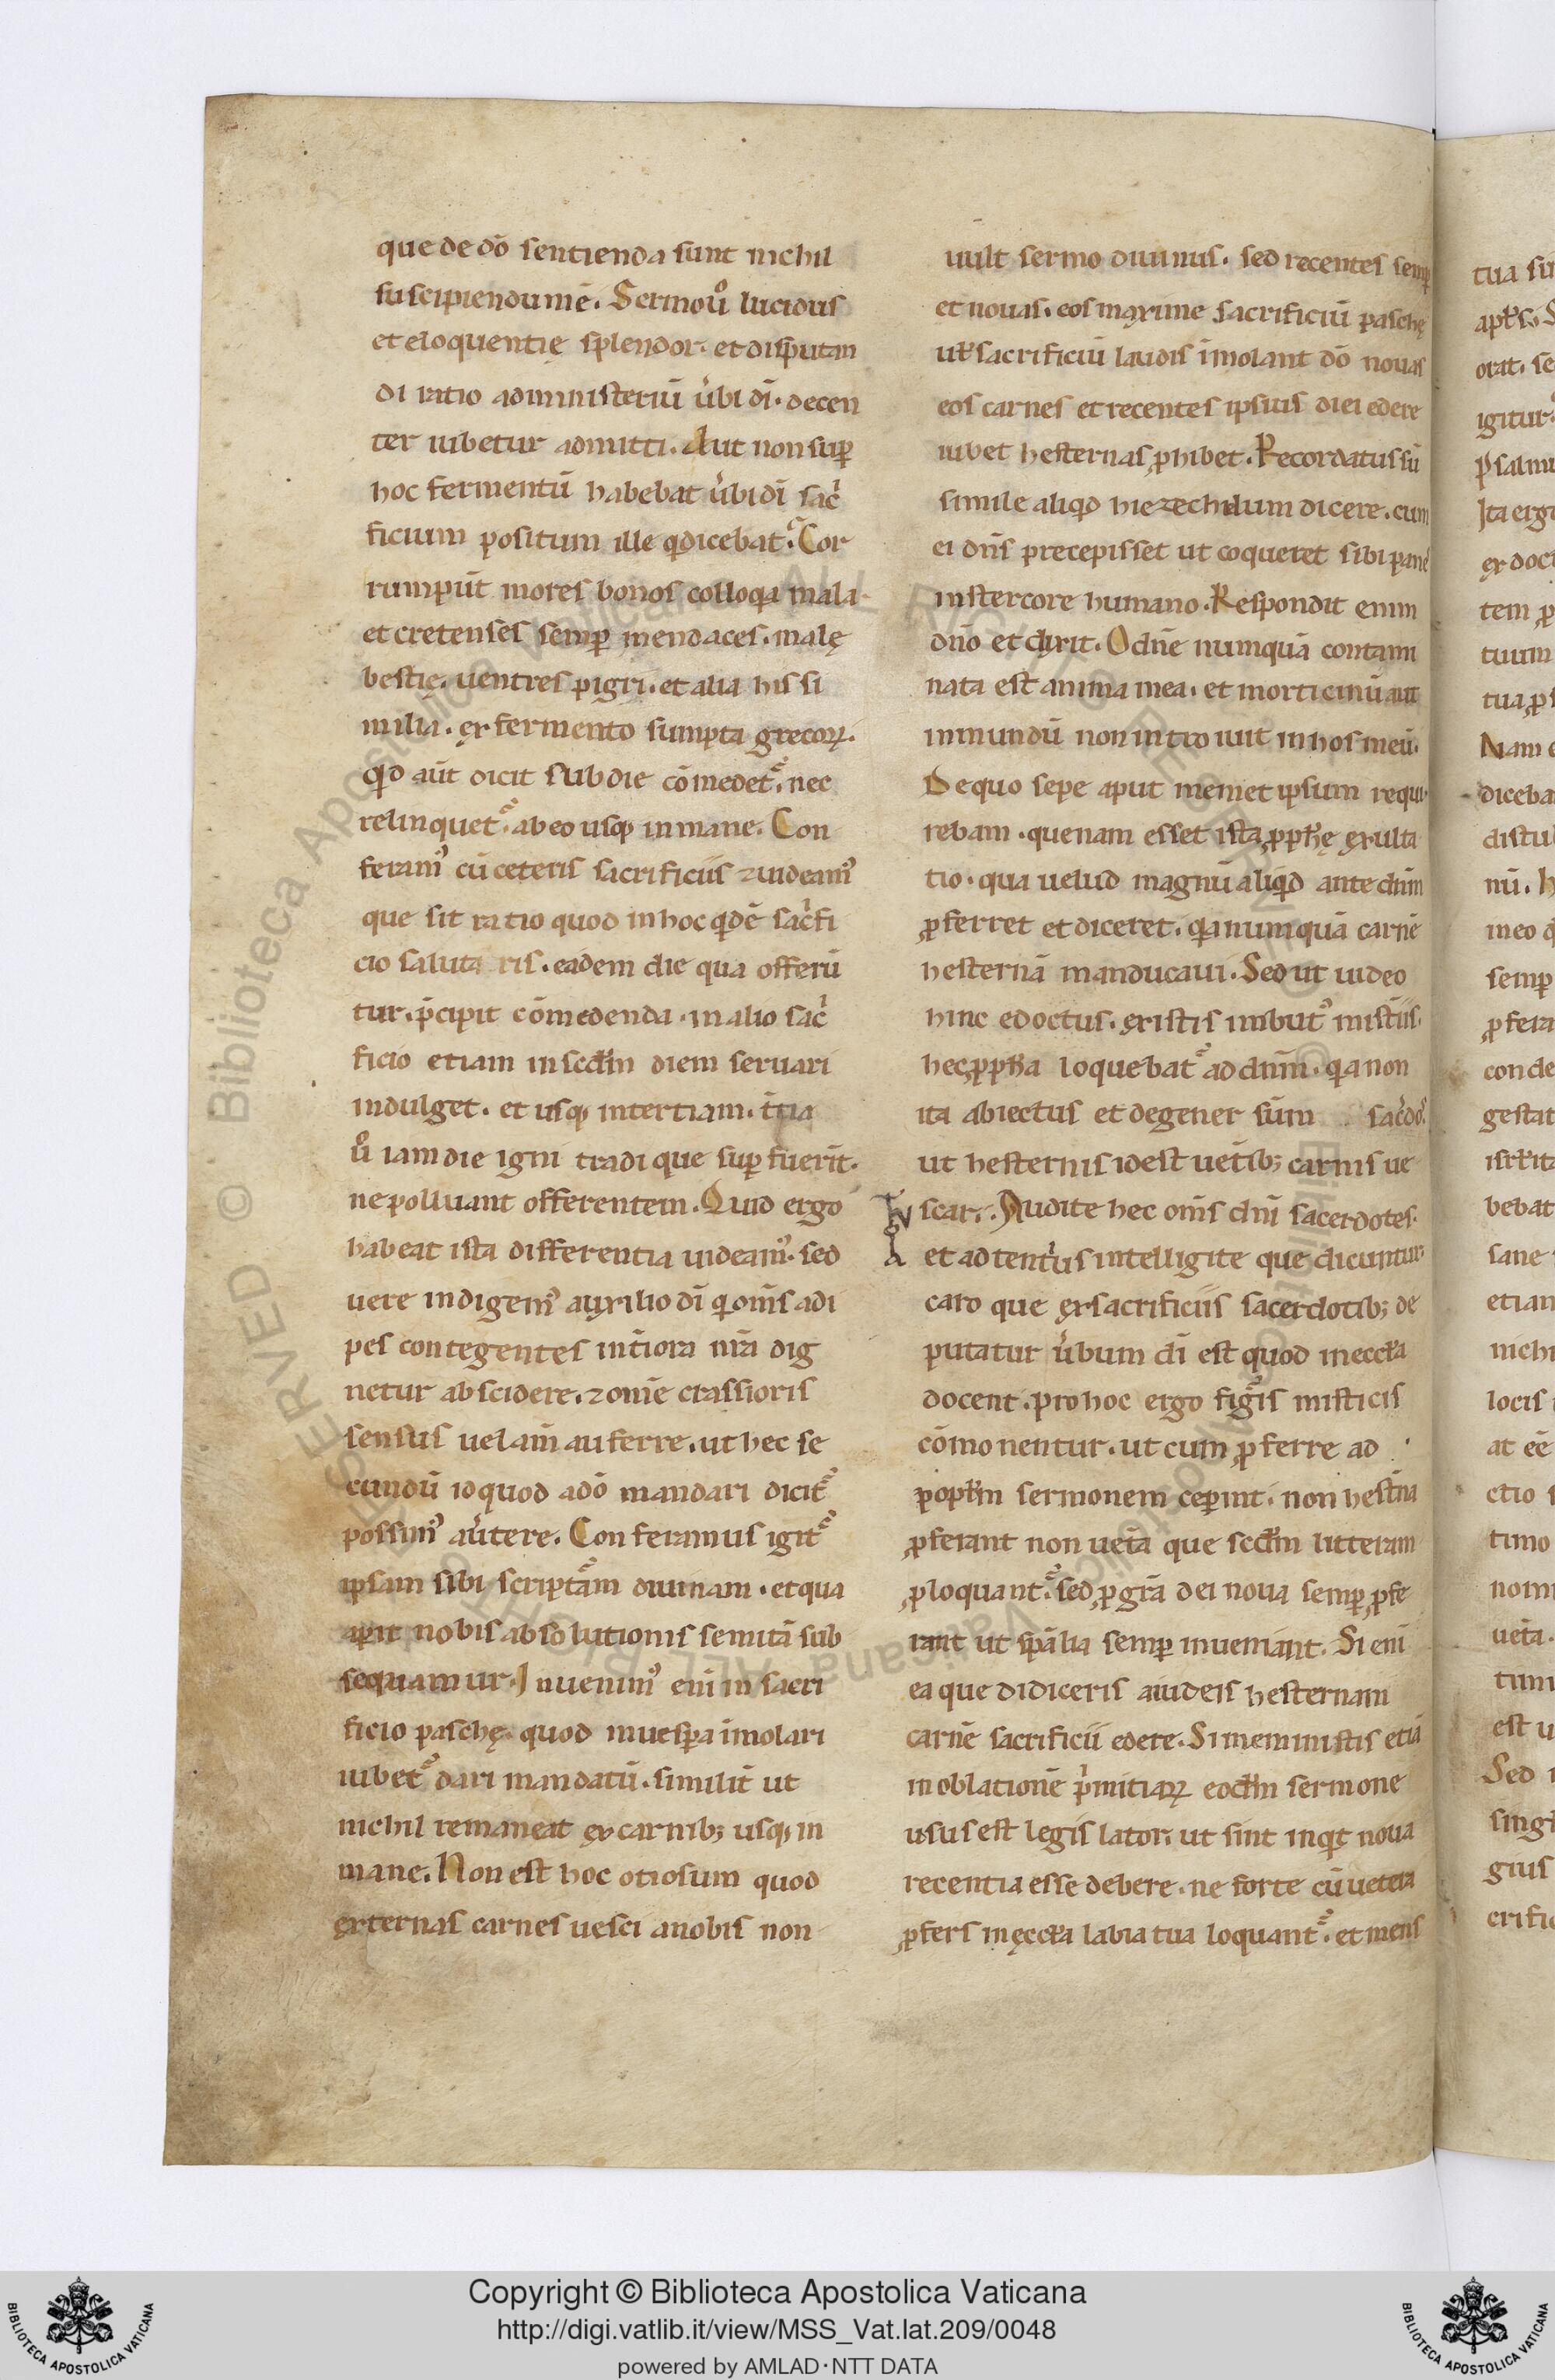 que de dō sentienda sunt nichil
suscipiendum ē. Sermo ů lucidus
et eloquentie splendor. et disputan
di ratio administeriū ůbi dī. decen
ter iubetur admitti. Aut non suꝑ
hoc fermentū habebat ůbi dī sac̓
ficium positum ille qđ dicebat. Cor
rumpūt mores bonos colloqa mala
et cretenses semꝑ mendaces. malę
bestię. uentres pigri. et alia his si
milia. ex fermento sumpta grecoꝝ.
Qđ aūt dicit sub die cōmedet᷑. nec
relinquet᷑ ab eo usqꝫ in mane. Con
feramꝰ cū ceteris sacrificiis ⁊ uideamꝰ
que sit ratio quod in hoc qdē sac̓fi
cio saluta ris. eadem die qua offerū
tur. p̄cipit cōmedenda. in alio sac̓
ficio etiam in scdm̄ diem seruari
indulget. et usqꝫ in tertiam. t̄tia
ů iam die igni tradi que suꝑfuerīt.
ne polluant offerentem. Quid ergo
habeat ista differentia uideamꝰ. sed
uere indigemꝰ auxilio dī q om̄s adi
pes contegentes int̄iora nr̄a dig
netur abscidere. ⁊ om̄e crassioris
sensus uelam̄ auferre. ut hec se
cundū id quod a dō mandari dicit᷑
possimꝰ au̓tere. Conferamus igit᷑
ipsam sibi scriptām diuinam. et qua
aꝑit nobis absolutionis semitā sub
sequamur. Inuenimꝰ eni in sacri
ficio paschę. quod in uesꝑa īmolari
iubet᷑ dari mandatū. similit̄ ut
nichil remaneat ex carnibꝫ usqꝫ in
mane. Non est hoc otiosum quod
externas carnes uesci a nobis non
uult sermo diuinus. sed recentes semꝑ
et nouas. eos maxime sacrificiū paschę
ut̄ sacrificiū laudis īmolant dō nouas
eos carnes et recentes ipsius diei edere
iubet hesternas ꝓhibet. Recordatus sū
simile aliqđ hiezechilum dicere. cum
ei dn̄s precepisset ut coqueret sibi panē
in stercore humano. Respondit enim
dn̄o et dixit. O dn̄e numquā contami
nata est anima mea. et morticinū aut
inmundū non introiuit in hos meū.
De quo sepe aput memet ipsum requi
rebam. quenam esset ista ꝓphę exulta
tio. qua uelud magnū aliqđ ante dn̄m
ꝓferret et diceret. qa numquā carnē
hesternā manducaui. Sed ut uideo
hinc edoctus. ex istis imbutꝰ mist̄iis.
hec ꝓpħa loquebat᷑ ad dn̄m. qa non
ita abiectus et degener sum sac̓dꝰ
ut hesternis id est uet̄ibꝫ carnis ue
scar. Audite hec om̄s dn̄i sacerdotes.
et adtent̓us intelligite que dicuntur.
caro que ex sacrificiis sacerdotibꝫ de
putatur ůbum dī est quod in eccła
docent. pro hoc ergo figis misticis
cōmonentur. ut cum ꝓferre ad
popłm sermonem ceꝑint. non hest̄na
ꝓferant non uet̄a que scdm̄ litteram
ꝓloquant᷑. sed ꝑ gr̄a dei noua semꝑ ꝓfe
rant ut sp̄alia semꝑ inueniant. Si eni
ea que didiceris a iudeis hesternam
carnē sacrificii edere. Si meministis etiā
in oblationē p̓mitiaꝝ eodm̄ sermone
usus est legis lator. ut sint inqt noua
recentia esse debere. ne forte cū uetera
ꝓfers in eccła labia tua loquant᷑. et mens
Copyright © Biblioteca Apostolica Vaticana
http://digi.vatlib.it/view/MSS_Vat.lat.209/0048
powered by AMLAD·NTT DATA